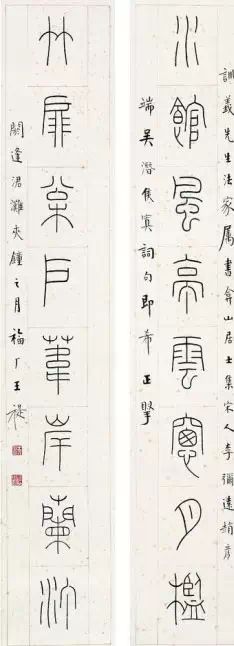 訓義先生法家属書弇山居士集宋人李彌遠趙彥
水館風亭雲窗月檻
端吳潛侯寘詞句即希正掔
竹扉松戶葦岸蘭汀
閼逢涒灘夾鐘之月福厂王禔